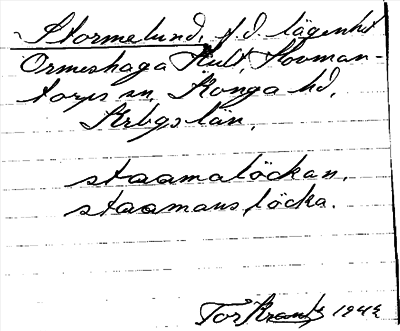 Stormelund, f.d. lägenhet
Ormeshaga Hult, Hovman-
torps sn, Konga hd,
Krbgs län.
staamalöckan,
staamans löcka.
Tor Krantz 1942